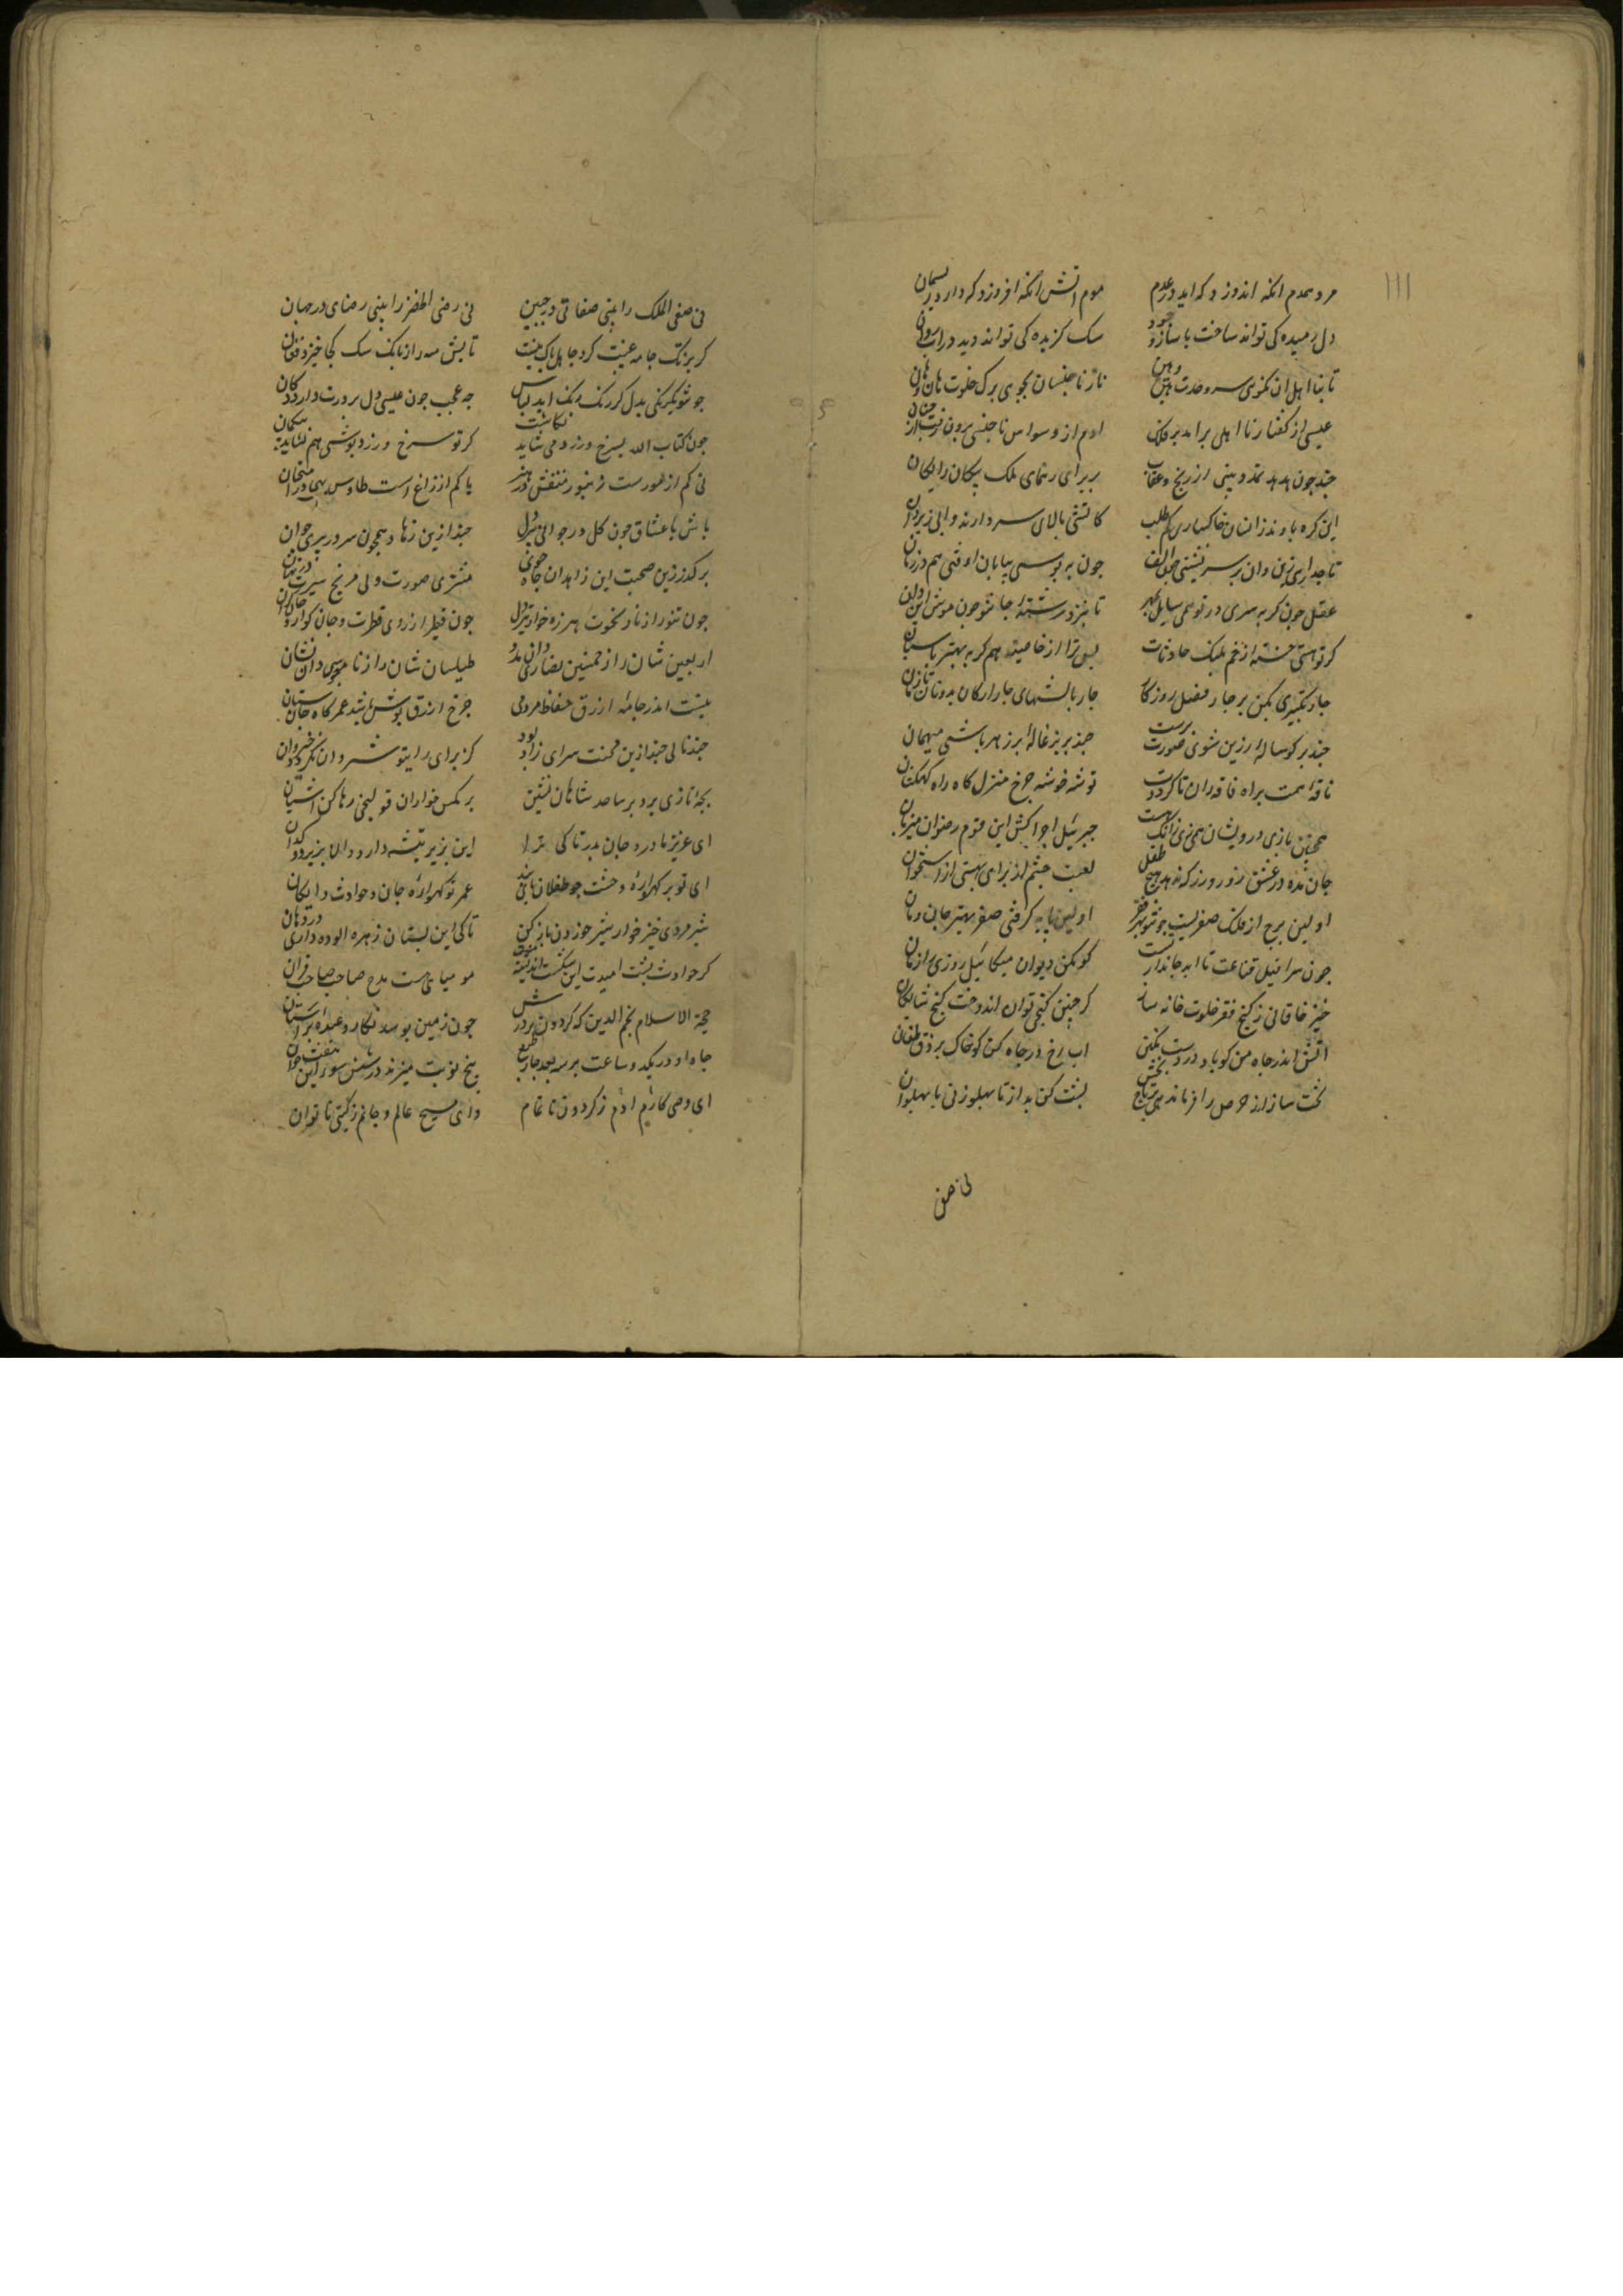 ۱۱۱
مرد همدم انکه اندوزد که اید در عدم موم از اتش انکه افروزد که دارد ریسمان
دل رمیده کی تواند ساخت با ساز وجود سک کزیده کی تواند دید در اب روان
تا بنا اهلان نکوی سر وحدت هین و هین تا ز نا جنسان نجوی برک خلوت هان و هان
عیسی از کفتار نا اهلی برامد بر فلک ادم از وسواس نا جنسی برون رفت از جنان
چند چون هدهد تهدد بینی از رنج و عذاب بر برای رهنمای ملک پیکان رایکان
این کره بادند ازانسان خاکساری کم طلب کاتشی بالای سر دارند و ابی زیر ران
تاجداری بر سر نشینی چون الف چون به بوسی پیابان اوفتی هم در زمان
عقل چون کربه سری در تو همی مالد بمهر تا نبرد رشته جانت چو موش این و ان
کر تو هستی خسته از زخم پلنک حادثات پس ترا از خاصیت هم کربه بهتر پاسبان
چار تکبیری بکن بر چار فصل روزکار چار بالشهای چار ارکان بدونان بازمان
چند بر کوساله زرین شوی صورت پرست چند بر بزغاله پر زهر باشی میهمان
ناقه همت براه فاقه ران تا کرددت توشه خوشه چرخ منزل کاه راه کهکشان
همچنین بازی درویشان همی زی زانکه هست جبرئیل اجراکش این قوم رضوان میزبان
جان مده در عشق زور و زر که ندهد هیچ طفل لعبت چشم از برای لعبتی از استخوان
اولین برج از فلک صفرست چون تو بهر فقر اولین پایه کرفتی صفر بهتر جان و مان
چون سرافیل قناعت تا ابد جاندار تست کو مکن دیوان میکائیل روزی را زمان
خیز خاقانی ز کنج فقر خلوت خانه ساز کز چنین کنجی توان اندوخت کنج شایکان
اتش اندر جاه زن کو باد در دست تکین اب رخ در چاه کن کو خاک بر فرق طغان
تخت ساز از حرص را فرمان دهی بر تاج بخش پشت کن بد از تا پهلو زنی با پهلوان
نی صفی
نی صفی الملک را بینی صفائی در جبین نی رضی المظفر را بینی رضای در جهان
کر بزنک جامه عیبت کرد جاهل باک نیست تابش مه را ز بانک سک کجا خیزد زیان
چو تو یکرنکی بدل کر رنک رنک اید لباس چه عجب چون عیسی دل بر درت دارد دکان
چون کتاب الله بسرخ و زرد می شاید نکاشت کر تو سرخ و زرد پوشی هم بشاید بیکمان
نی کم از مورست زنبور منقش در هنر یا کم از زاغ است طاوس بهی در امتحان
باش با عشاق چون کل در جوانی پیر دل چند ازین زهاد همچون سرو در پیری جوان
بر کذر زین صحبت این زاهدان جاه جوی مشتری صورت ولی مریخ سیرت در نهان
چون تنور از نار نخوت هرزه خوار و تیز دل چون فطیر از روی فطرت و جان کران
اربعین شان را ز خمسین نصاری دان مدد طیلسان شان را ز زنار مجوسی دان نشان
نیست اندر جامه ازرق حفاظ مردمی چرخ ازرق پوش اینک عمر کاه و جان ستان
چند نالی چند ازین محنت سرای زاد بود کز برای رای تو شروان نکردد خیروان
بچه نازی برو بر ساعد شاهان نشین بر مکس خواران قولنجی رها کن اشیان
ای عزیز مادر و جان پدر تا کی ترا این بزیر تیشه دارد وان بزیر دوکدان
ای تو بر کهواره وحشت چو طفلان پای بند عمر تو کهواره جان و حوادث دایکان
شیر مردی خیز خوار شیر خوردن باز کن تا کی این پستان زهر الوده داری در دهان
کر حوادث پشت امیدت شکست اندیشه نیست مومیایی هست مدح صاحب صاحب قران
حجة الاسلام نجم الدین که کردون بر درش چون زمین بوسد نکارد عبده بر استان
جاه او در یکدو ساعت بر سه بعد و چار طبع پنج نوبت میزند در شش سوی این هفت خوان
ای وصی کارم ادم ز کردون نا تمام وای مسیح عالم و جانم ز کیتی ناتوان